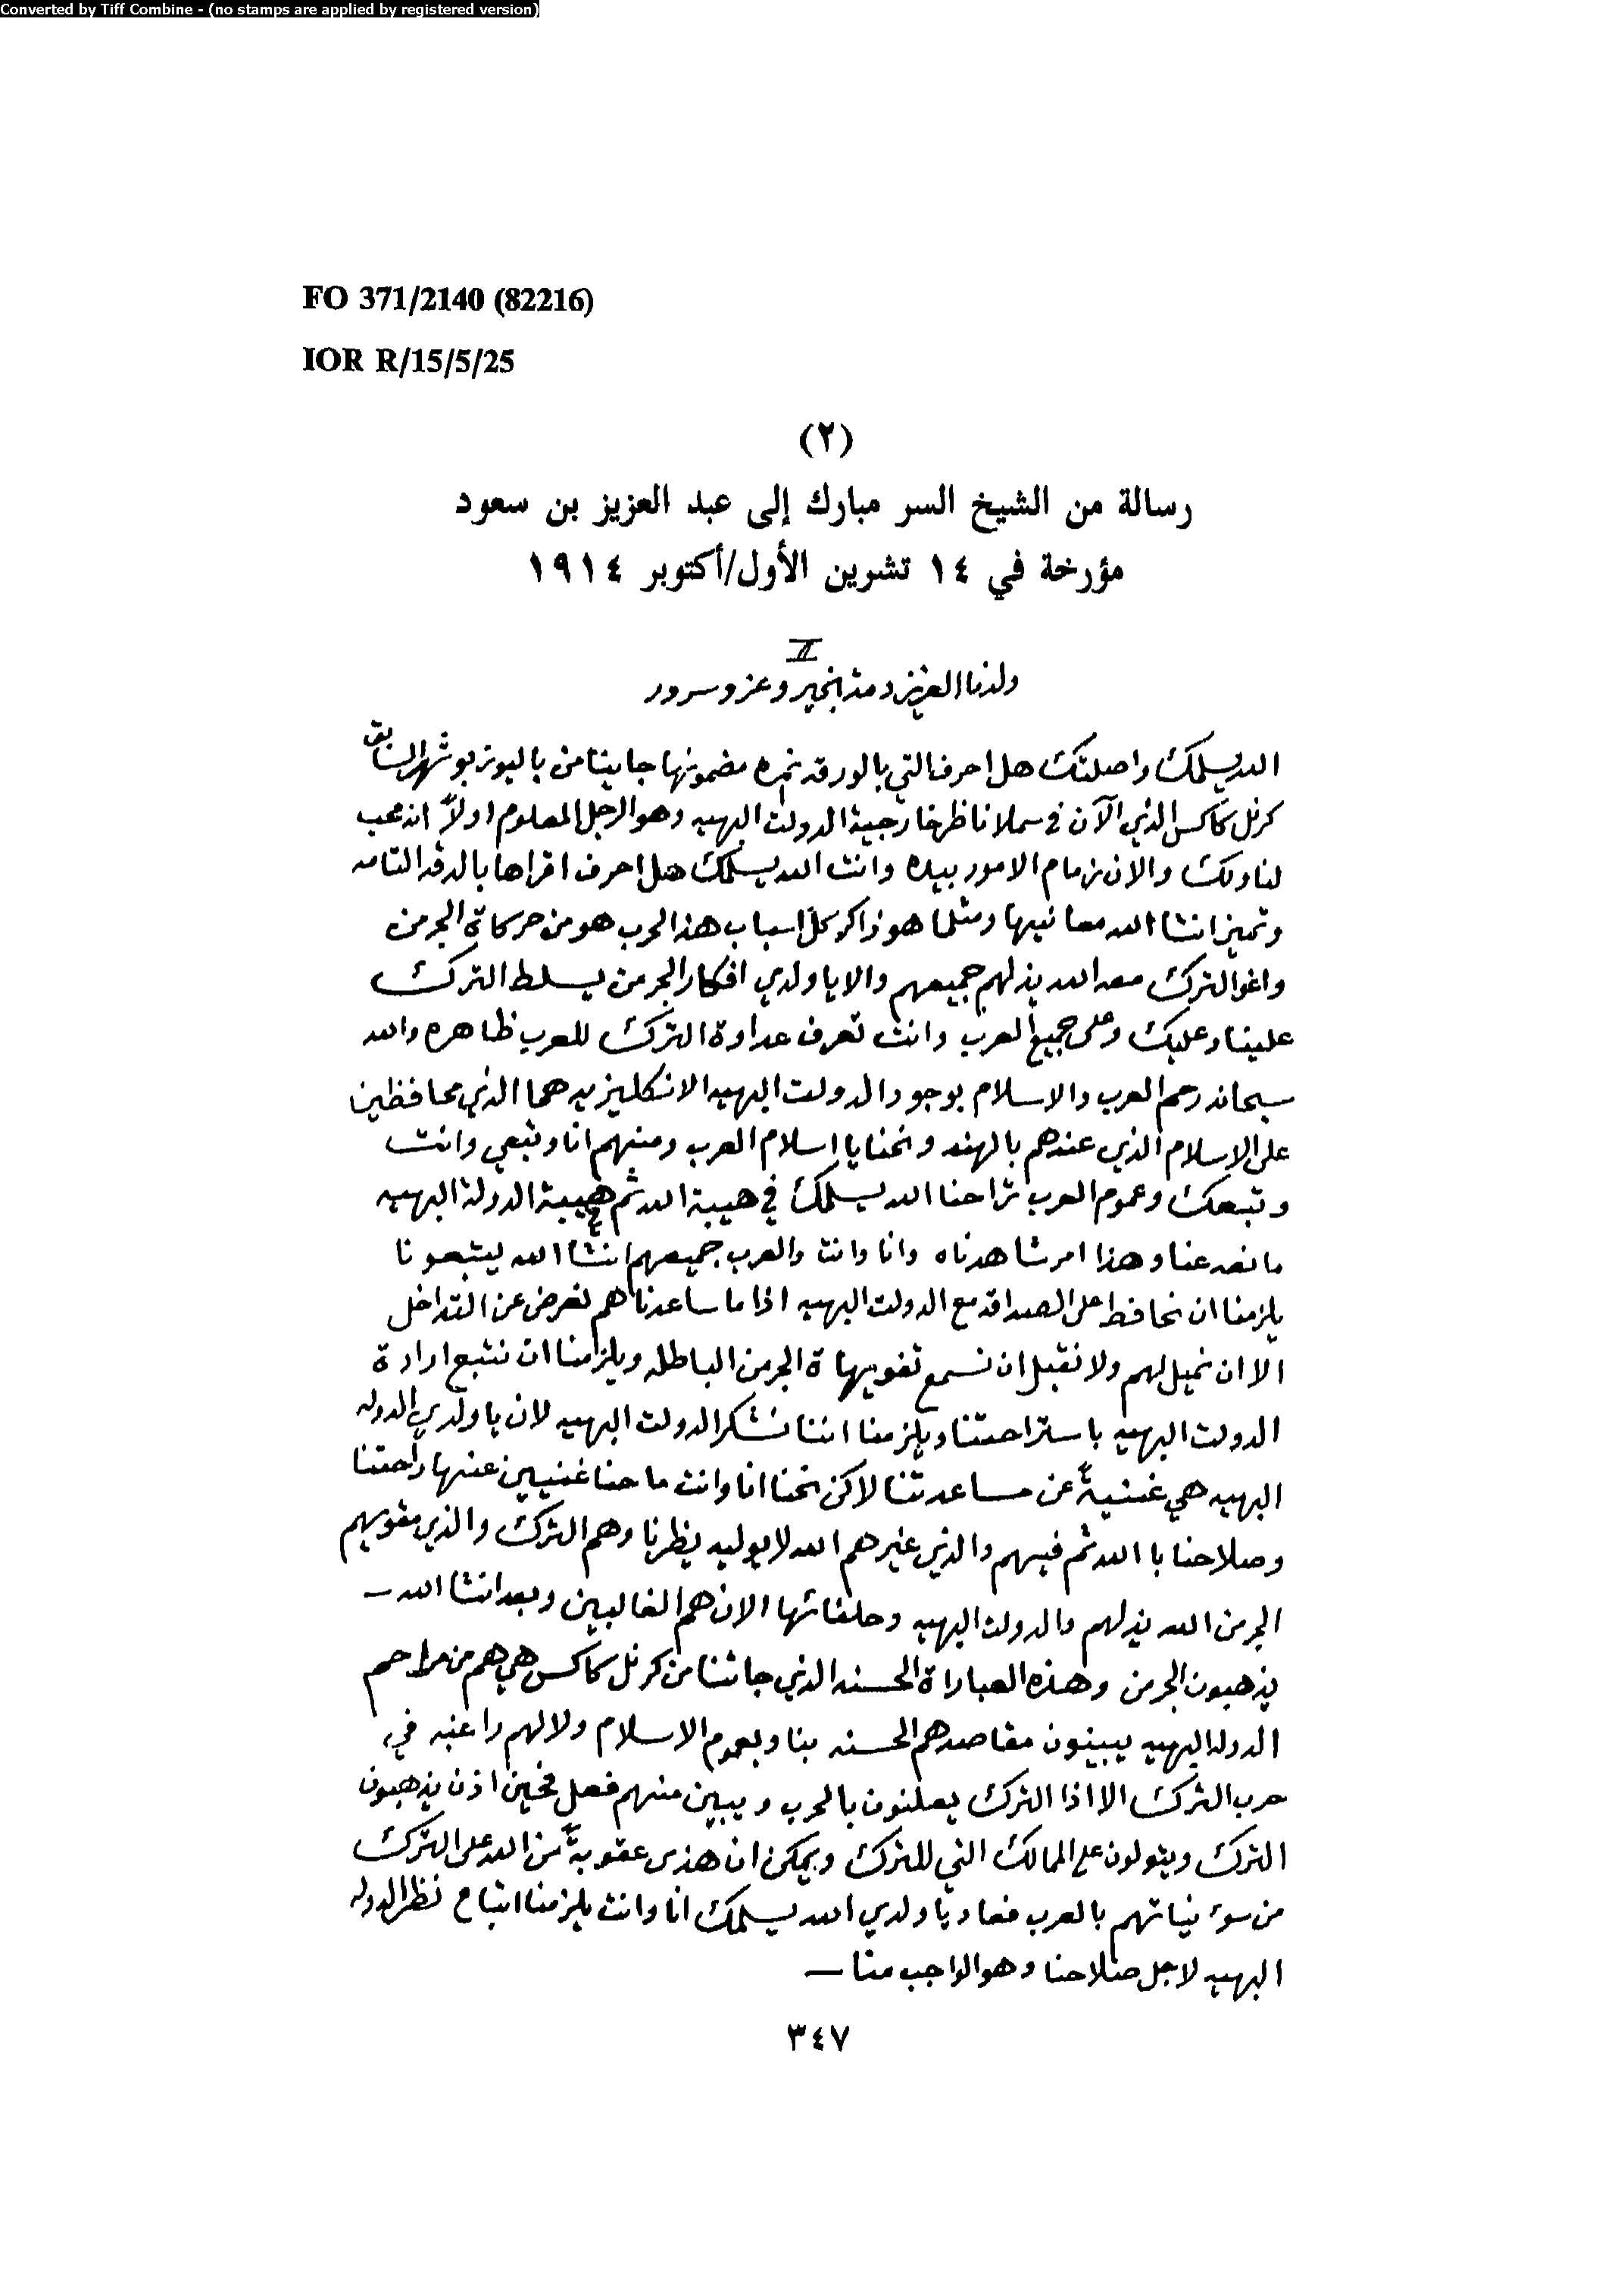 Converted by Tiff Combine - (no stamps are applied by registered version)
FO 371/2140 (82216)
IOR R/15/5/25
(٢)
رسالة من الشيخ السر مبارك إلى عبد العزيز بن سعود
مؤرخة في ١٤ تشرين الأول/أكتوبر ١٩١٤
II
ولدنا العزيز دمت بخير وعز وسرور
الله يسلمك واصلتك هل احرف التي بالورقه نمره مضمونها جايتنا من باليوز بو شهر السابق
كرنل كاكس الذي الآن في سملا ناظر خارجية الدولت البهيه وهو الرجل المعلوم اولاً انه محب
لنا ولك والان زمام الامور بيده وانت الله يسلمك هل احرف اقراها بالدقه التامه
وتميز انشا الله معانيها ومثلما هو ذاكر كل اسباب هذا الحرب هو من حركاة الجرمن
واغوا الترك معه الله يذلهم جميعهم والا يا ولدي افكار الجرمن يسلط الترك
علينا وعليك وعلى جميع العرب وانت تعرف عداوة الترك للعرب ظاهره والله
سبحانه رحم العرب والاسلام بوجود الدولت البهيه الانكليزيه هما الذي محافظين
على الاسلام الذي عندهم بالهند ونحنا يا اسلام العرب ومنهم انا وتبعي وانت
وتبعك وعموم العرب تراحنا الله يسلمك في هيبة الله ثم هيبة الدولة البهيه
مانعه عنا وهذا امر شاهدناه وانا وانت والعرب جميعهم انشا الله ليتبعونا
يلزمنا ان نحافظ على الصداقه مع الدولت البهيه اذا ما ساعدناهم نعرض عن التداخل
الا ان نميل لهم ولا نقبل ان نسمع تمويهاة الجرمن الباطله ويلزمنا ان نتبع ارادة
الدولت البهيه باستراحتنا ويلزمنا اننا نشكر الدولت البهيه لان يا ولدي الدوله
البهيه هي غنيةً عن مساعدتنا لاكن نحنا انا وانت ما حنا غنيين عنها راحتنا
وصلاحنا با الله ثم فيهم والذي غيرهم الله لا يوليه ينظرنا وهم الترك والذي مقويهم
الجرمن الله يذلهم والدولت البهيه وحلفائها الان هم الغالبين وبعد انشا الله —
يذهبون الجرمن وهذه العباراة الحسنه الذي جائتنا من كرنل كاكس هي هم من مراحم
الدوله البهيه يبينون مقاصدهم الحسنه بنا وبعموم الاسلام ولا لهم راغبه في
حرب الترك الا اذا الترك يعلنون بالحرب ويبين منهم فعل فحين اذن يذهبون
الترك ويتولون على الممالك التي للترك ويمكن ان هذى عقوبةً من الله على الترك
من سوء نياتهم بالعرب فعاد يا ولدي الله يسلمك انا وانت يلزمنا اتباع نظر الدوله
البهيه لاجل صلاحنا وهو الواجب منا —
٣٤٧